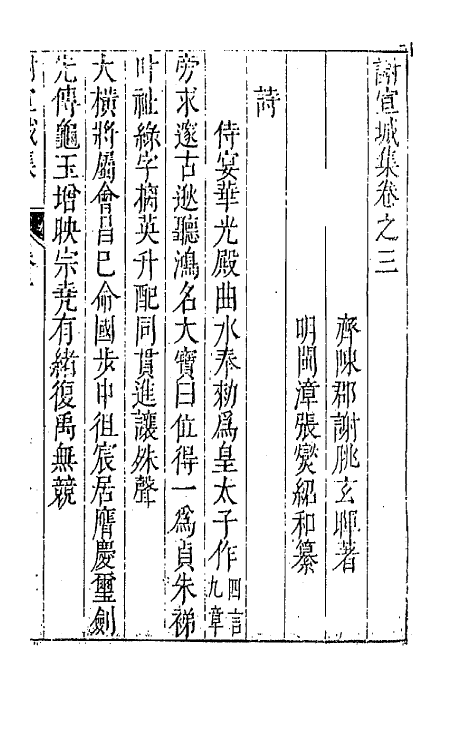 謝宣城集卷之三
齊陳郡謝朓玄暉著
明閩漳張燮紹和纂
詩
侍宴華光殿曲水奉勑爲皇太子作四言九章
旁求邃古逖聽鴻名大寶曰位得一爲貞朱綈
叶祉綠字摛英升配同貫進讓殊聲
大橫將屬會昌已命國步中徂宸居膺慶璽劍
先傳龜玉增映宗堯有緒復禹無競